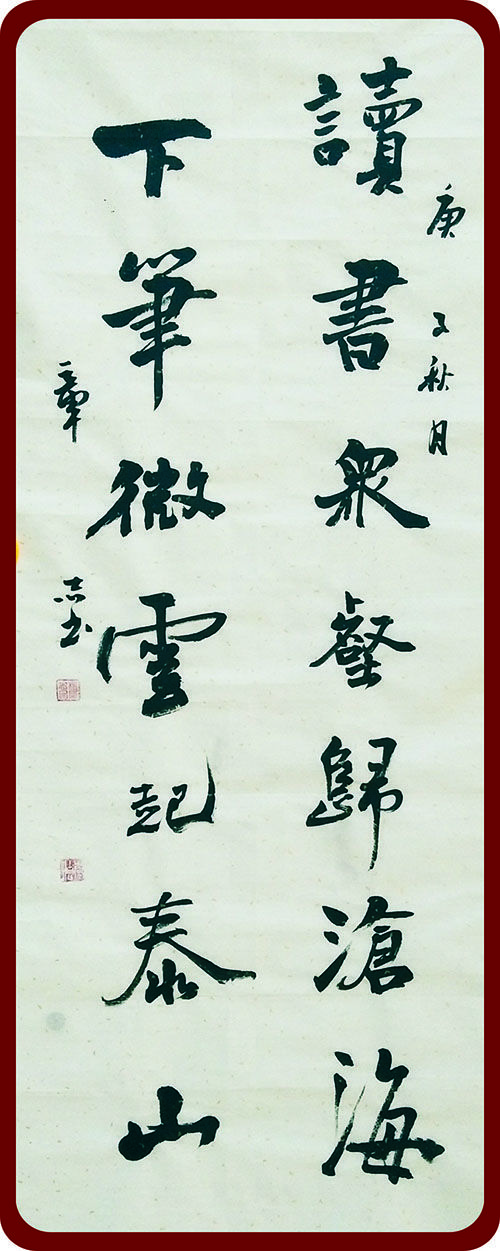 讀書衆壑歸滄海
下筆微雲起泰山
庚子秋月
章
书